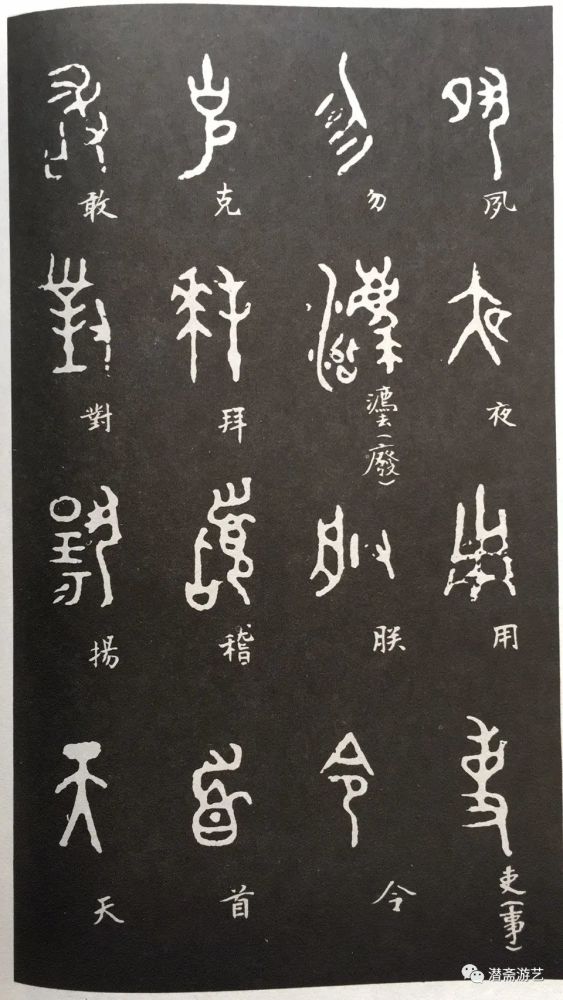 夙夜用吏(事)
勿灋(廢)朕令
克拜稽首
敢對揚天
潜斋游艺